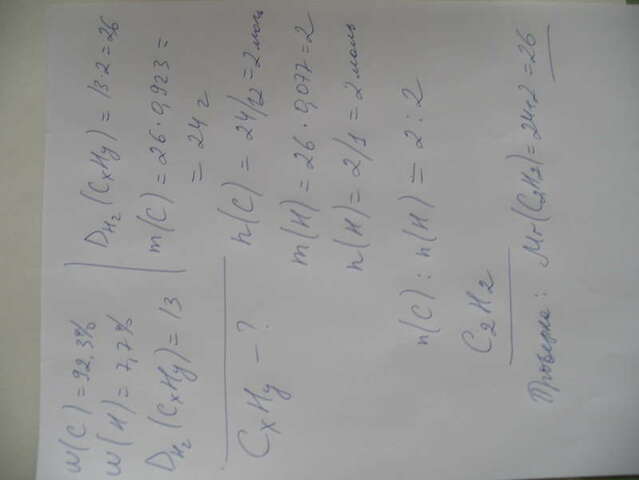 W(C) = 92,3%
W(H) = 7,7%
D_H₂(CxHy) = 13
CxHy – ?
D_H₂(CxHy) = 13·2=26
m(C) = 26·0,923 =
= 24 г
n(C) = 24/12 = 2 моль
m(H) = 26·0,077 = 2
n(H) = 2/1 = 2 моль
n(C) : n(H) = 2 : 2
C₂H₂
Проверка: Mr(C₂H₂)=24+2=26